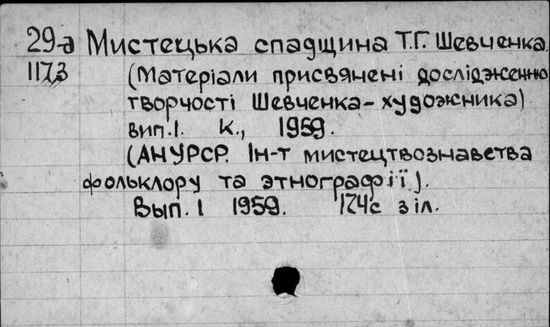 29-а Мистецька спадщина Т.Г. Шевченка.
1173 (Матеріали присвячені дослідженню
творчості Шевченка-художника)
вип.1. К., 1959.
(АНУРСР. Ін-т мистецтвознавства
фольклору та этнографії).
Вып. 1 1959. 174с з іл.